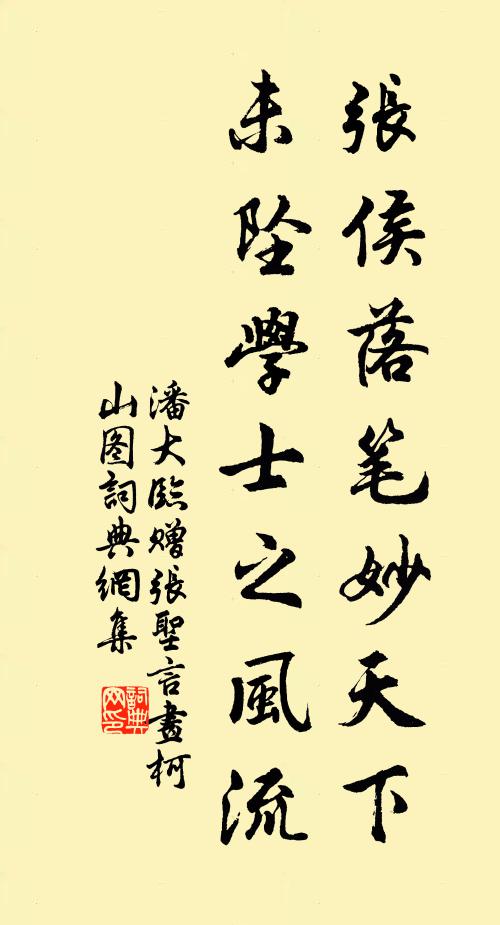 張侯落笔妙天下
未坠學士之風流
潘大臨贈張聖言畫柯
山图詞典網集
詞典
网印